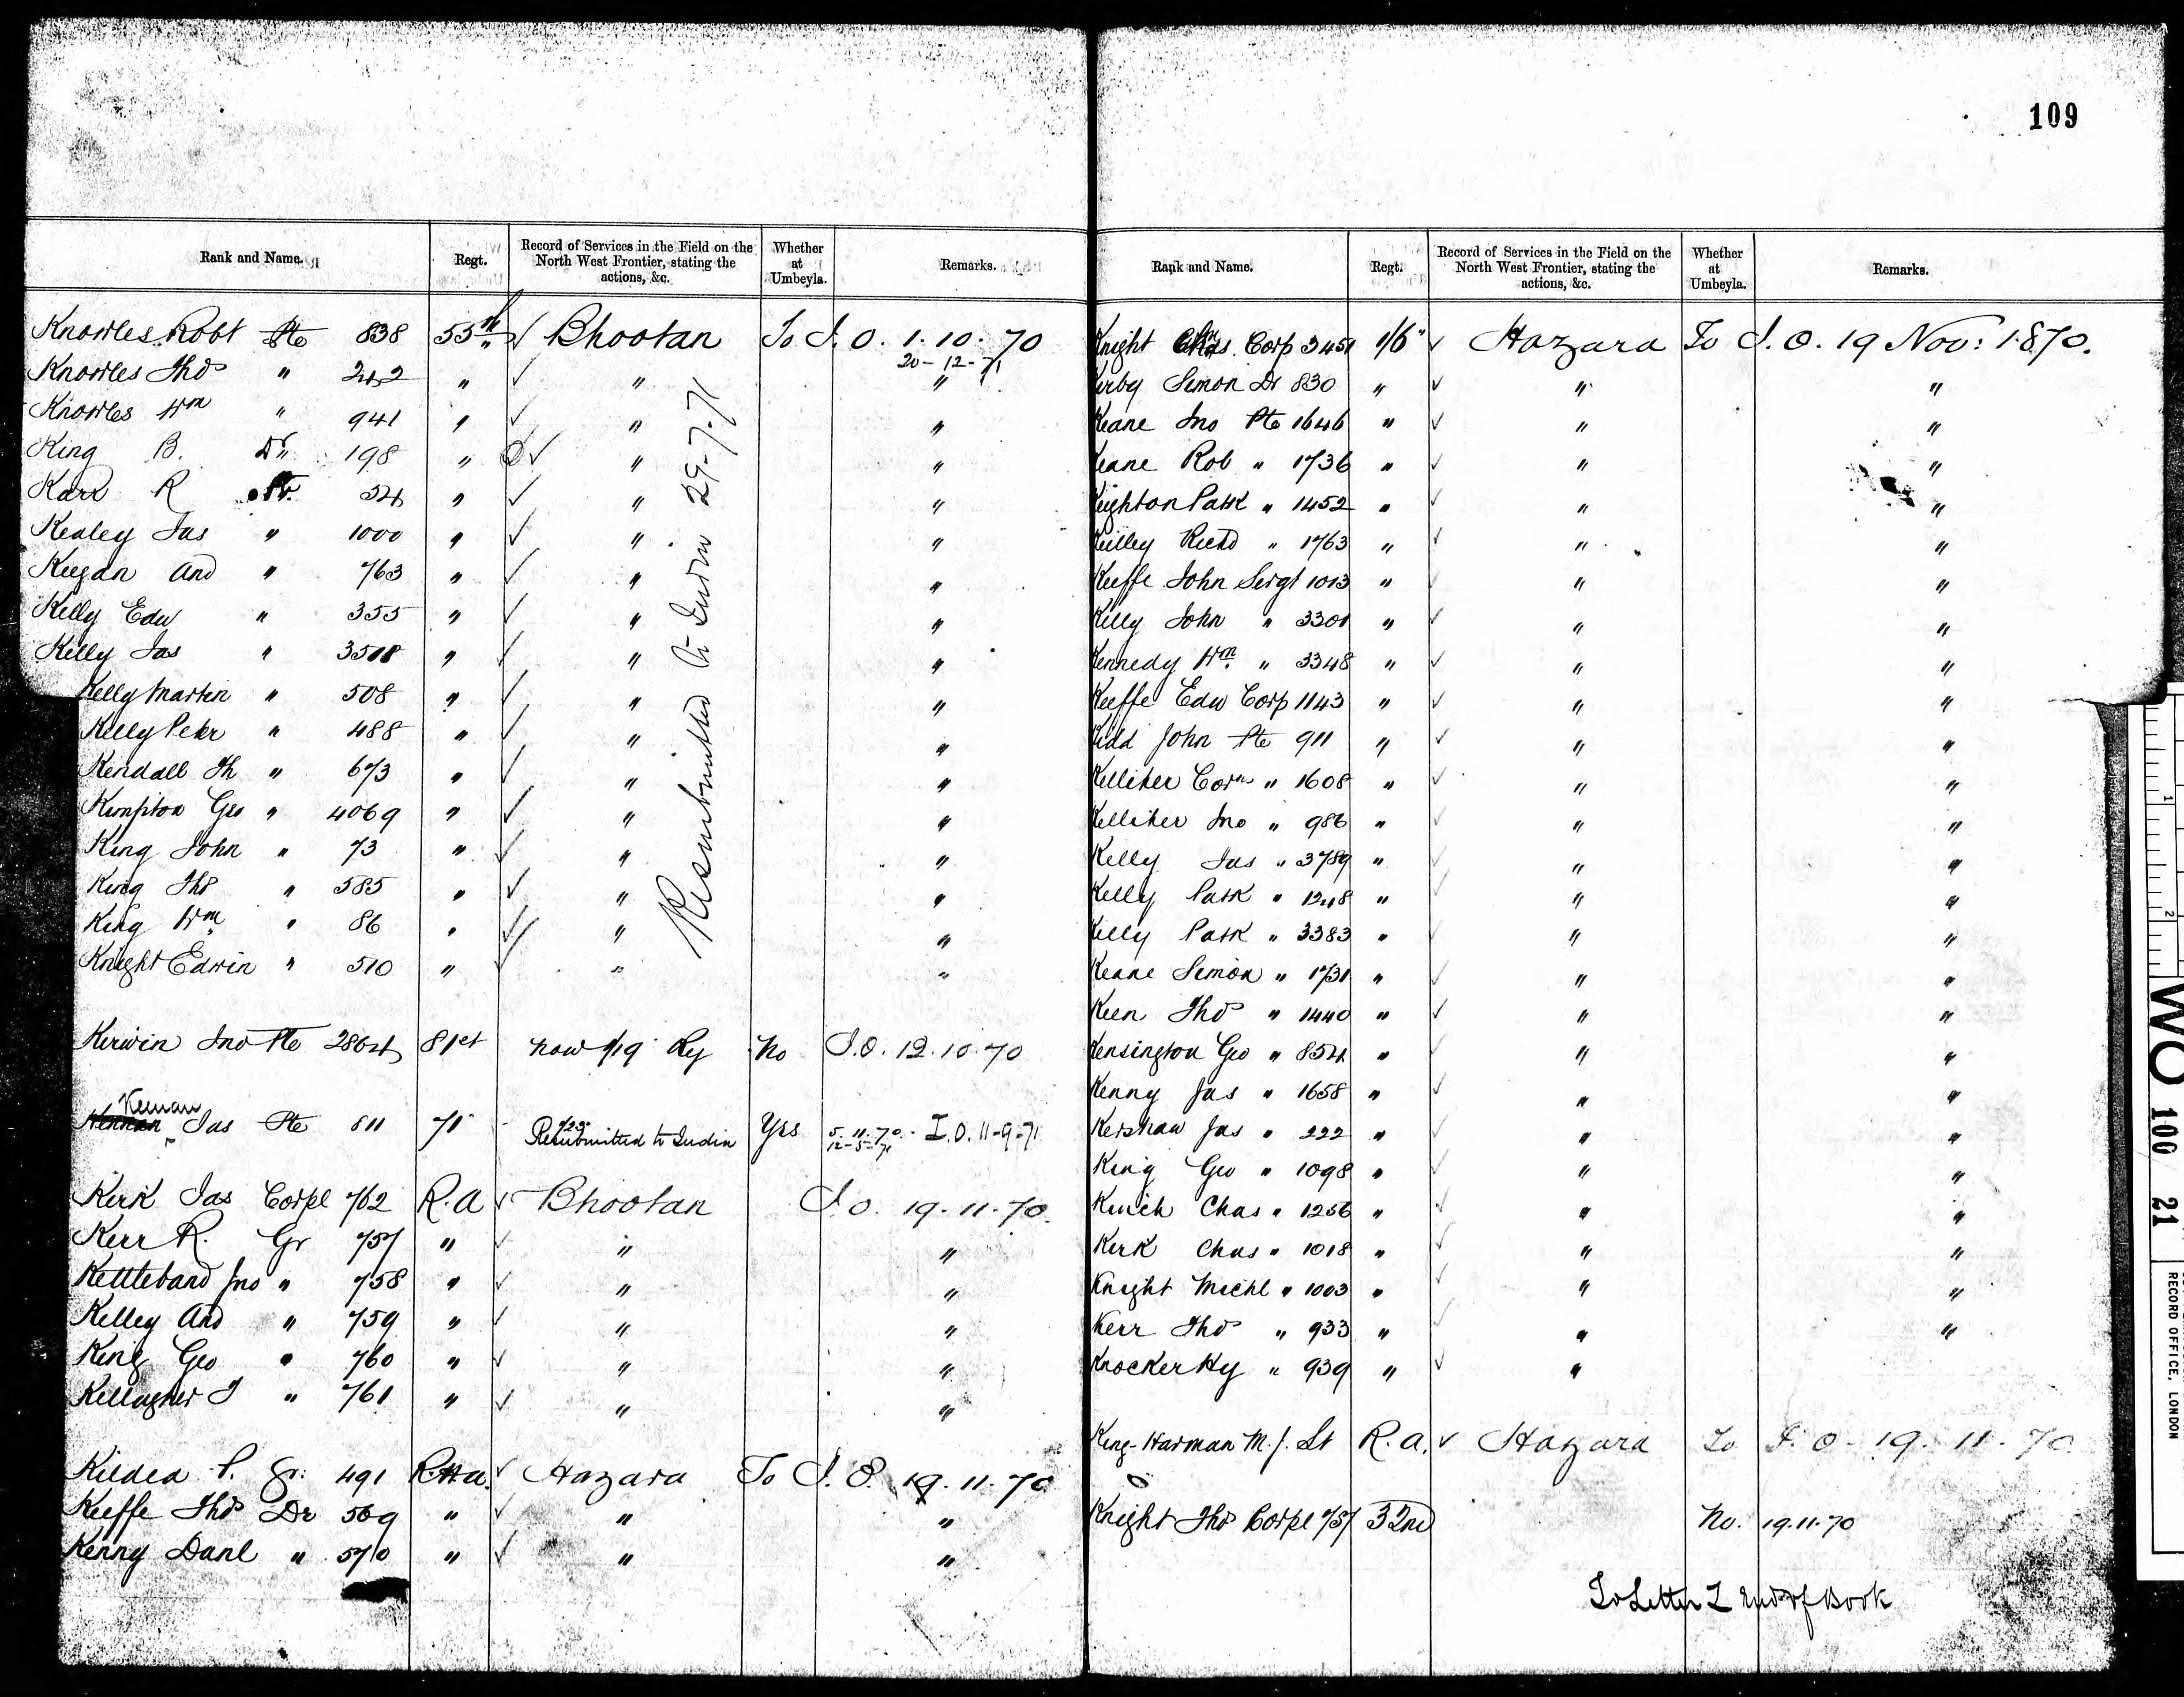 109
Rank and Name. Regt. Record of Services in the Field on the North West Frontier, stating the actions, &c. Whether at Umbeyla. Remarks.
Knowles Robt Pte 838 55th ✓ Bhootan To I.O. 1.10.70
20-12-71
Knowles Thos " 242 " ✓ " "
Knowles Wm " 941 " ✓ " "
King B. Dr 198 " ✓ " "
Karr R Pte 54 " ✓ " "
Kealey Jas " 1000 " ✓ " "
Keegan And " 763 " ✓ " "
Kelly Edw " 355 " ✓ " "
Kelly Jas " 3518 " ✓ " "
Kelly Martin " 508 " ✓ " "
Kelly Peter " 488 " ✓ " "
Kendall Th " 673 " ✓ " "
Kempton Geo " 4069 " ✓ " "
King John " 73 " ✓ " "
King Thos " 585 " ✓ " "
King Wm " 86 " ✓ " "
Knight Edwin " 510 " ✓ " "
Resubmitted to India 29-7-71
Kerwin Jno Pte 2804 81st now 1/19 Ry No I.O. 12.10.70
Keenan
Jas Pte 811 71 Resubmitted to India Yes 5.11.70 I.O. 11-9-71
12-5-71
Kirk Jas Corpl 762 R.A ✓ Bhootan I.O. 19.11.70.
Kerr R. Gr 757 " ✓ " "
Kettleband Jno " 758 " ✓ " "
Kelley And " 759 " ✓ " "
King Geo " 760 " ✓ " "
Kellagher T " 761 " ✓ " "
Kildea P. Gr. 491 R.H.A. ✓ Hazara To I.O. 19.11.70
Keeffe Thos Dr 569 " ✓ " "
Kenny Danl " 570 " ✓ " "
Rank and Name. Regt. Record of Services in the Field on the North West Frontier, stating the actions, &c. Whether at Umbeyla. Remarks.
Knight Chas. Corp 3451 1/6" ✓ Hazara To I.O. 19 Nov: 1870.
Kirby Simon Dr 830 " ✓ " "
Keane Jno Pte 1646 " ✓ " "
Keane Rob " 1736 " ✓ " "
Keighton Patk " 1452 " ✓ " "
Keilley Richd " 1763 " ✓ " "
Keeffe John Sergt 1013 " ✓ " "
Kelly John " 3301 " ✓ " "
Kennedy Wm " 3348 " ✓ " "
Keeffe Edw Corp 1143 " ✓ " "
Kidd John Pte 911 " ✓ " "
Kelliher Corns " 1608 " ✓ " "
Kelliher Jno " 986 " ✓ " "
Kelly Jas " 3789 " ✓ " "
Kelly Patk " 1248 " ✓ " "
Kelly Patk " 3383 " ✓ " "
Keane Simon " 1731 " ✓ " "
Keen Thos " 1440 " ✓ " "
Kensington Geo " 854 " ✓ " "
Kenny Jas " 1658 " ✓ " "
Kershaw Jas " 222 " ✓ " "
King Geo " 1098 " ✓ " "
Kinch Chas " 1256 " ✓ " "
Kirk Chas " 1018 " ✓ " "
Knight Michl " 1003 " ✓ " "
Kerr Thos " 933 " ✓ " "
Knocker Hy " 939 " ✓ "
King-Harman M.J. Lt R.A. ✓ Hazara To I.O. 19.11.70
Knight Thos Corpl 757 32nd No. 19.11.70
To Letter L End of Book
1
2
WO 100 21
RECORD OFFICE, LONDON